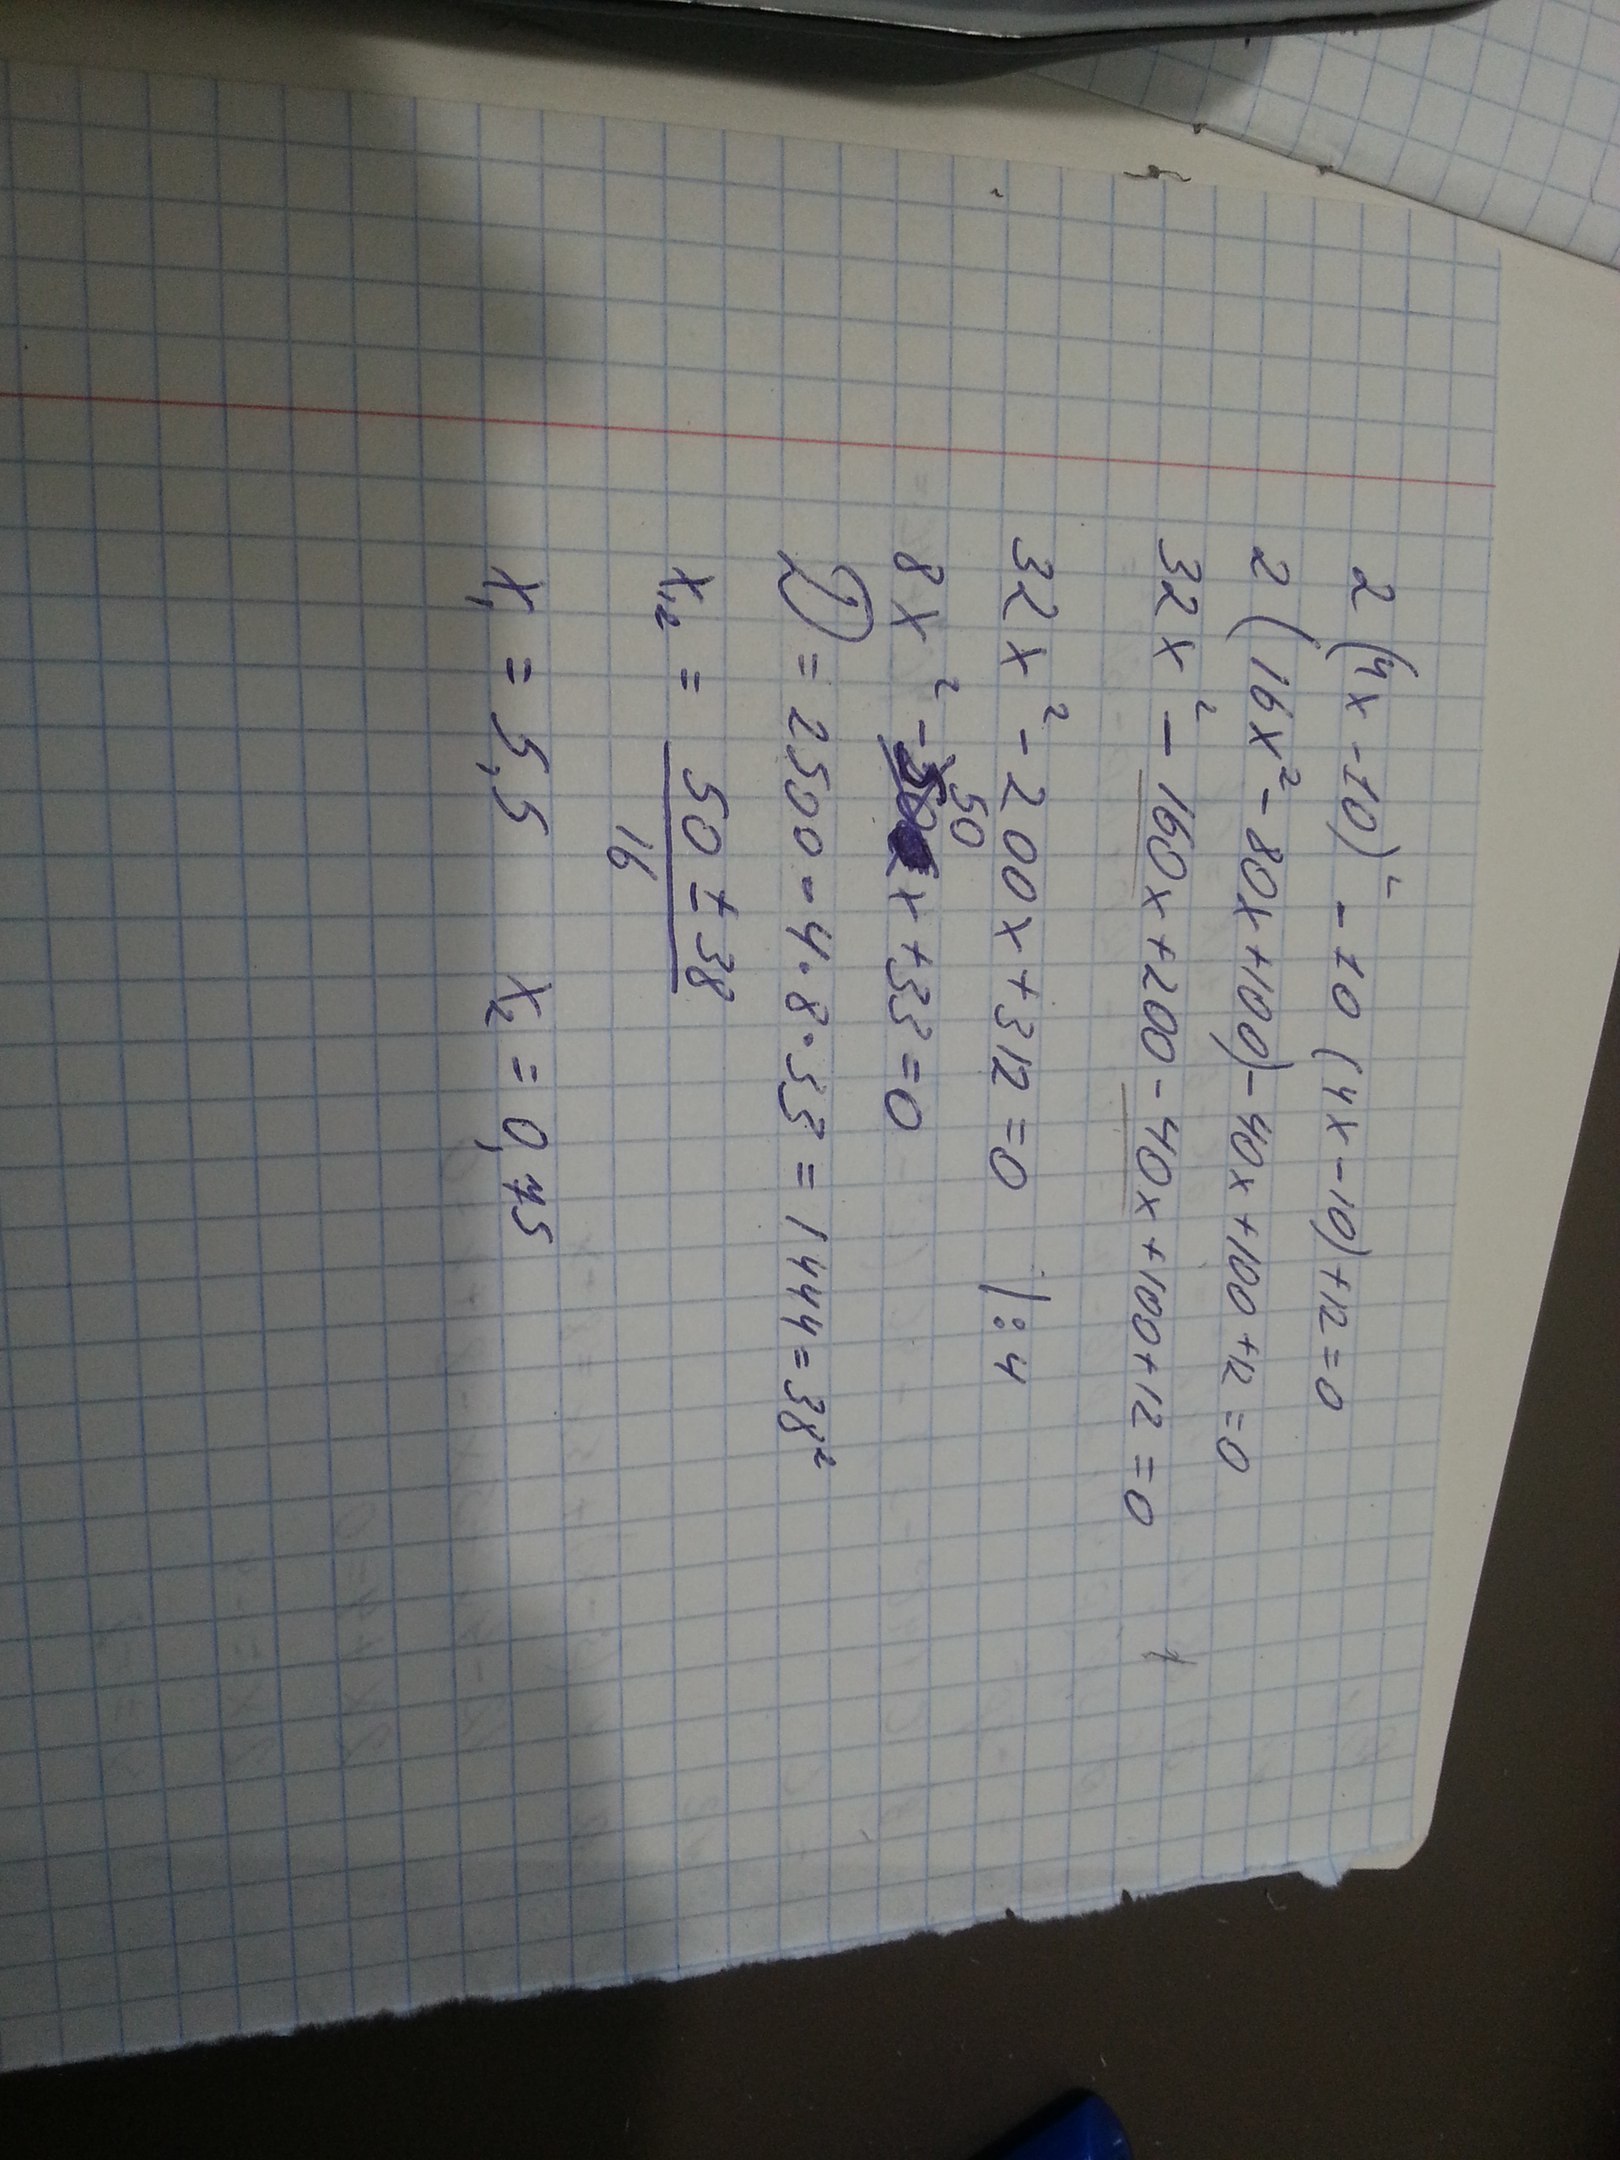 2(4x-10)² - 10(4x-10)+12=0
2(16x²-80x+100)-40x+100+12=0
32x²-160x+200-40x+100+12=0
32x²-200x+312=0 |:4
8x²-50x+33=0
D=2500-4·8·33=1444=38²
x₁,₂ = (50±38)/16
x₁=5,5 x₂=0,75